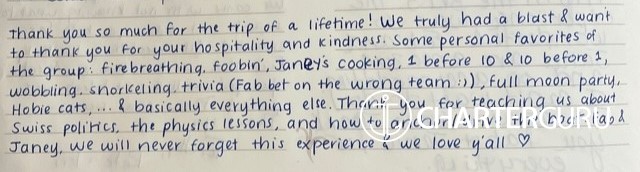 Thank you so much for the trip of a lifetime! We truly had a blast & want
to thank you for your hospitality and kindness. Some personal favorites of
the group: firebreathing, foobin', Janey's cooking, 1 before 10 & 10 before 1,
wobbling, snorkeling, trivia (Fab bet on the wrong team :)), full moon party,
Hobie cats, ... & basically everything else. Thank you for teaching us about
Swiss politics, the physics lessons, and how to the Fab &
Janey, we will never forget this experience & we love y'all ♡
CHARTERGURU